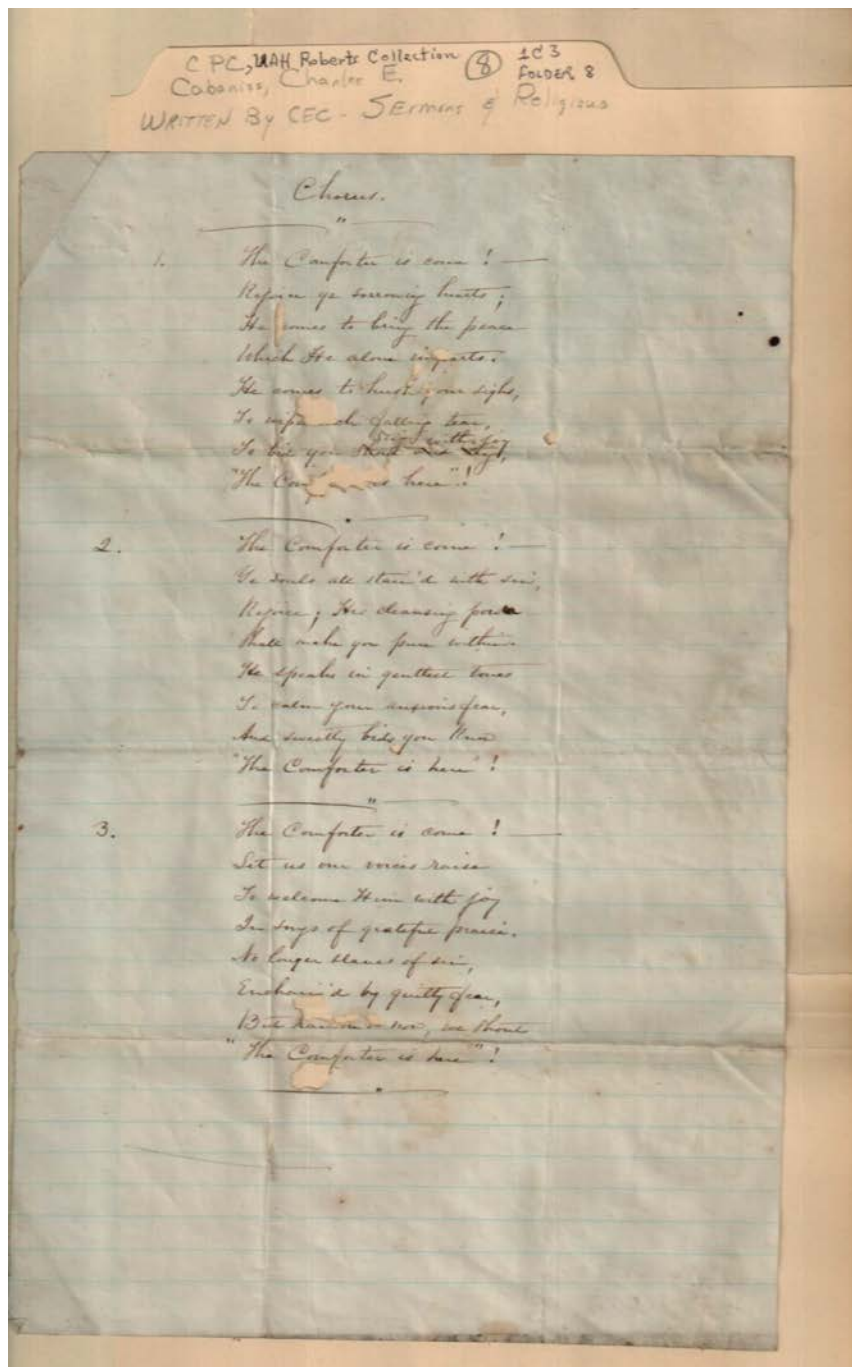 CPC, UAH Roberts Collection (8) 1C3
Cabaniss, Charles E. FOLDER 8
WRITTEN BY CEC - SERMONS & Religious
Chorus.
1. The Comforter is come! —
Rejoice ye sorrowing hearts;
He comes to bring the peace
Which He alone imparts.
He comes to hush your sighs,
To wipe each falling tear,
sing with joy
To bid you
"The Com is here"!
2. The Comforter is come! —
Ye souls all stain'd with sin,
Rejoice; His cleansing power
Shall make you pure within
He speaks in gentlest tones
To calm your anxious fear,
And sweetly bids you know
"The Comforter is here"!
3. The Comforter is come! —
Let us our voices raise
To welcome Him with joy
In songs of grateful praise.
No longer slaves of sin,
Enchain'd by guilty fear,
But now, we shout
"The Comforter is here"!